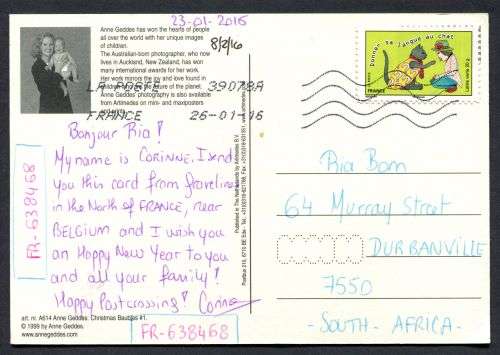 23-01-2016
Anne Geddes has won the hearts of people
all over the world with her unique images
of children.
The Australian-born photographer, who now
lives in Auckland, New Zealand, has won
many international awards for her work.
Her work mirrors the joy and love found in
children
Anne Geddes' photography is also available
from Artimedes on mini- and maxiposters
8/2/16
LA POSTE 39078A
FRANCE 26-01-16
Donner sa langue au chat
FRANCE
Lettre verte 20 g
Bonjour Ria!
My name is CORINNE, I send
you this card from
in the North of FRANCE, near
BELGIUM and I wish you
an Happy New Year to you
and all your family!
Happy Postcrossing! Corinne
FR-638468
FR-638468
art. nr. A614 Anne Geddes: Christmas Baubles #1.
© 1999 by Anne Geddes.
www.annegeddes.com
Published in The Netherlands by Artimedes B.V.
Ria Bom
64 Murray Street
DURBANVILLE
7550
- SOUTH - AFRICA -